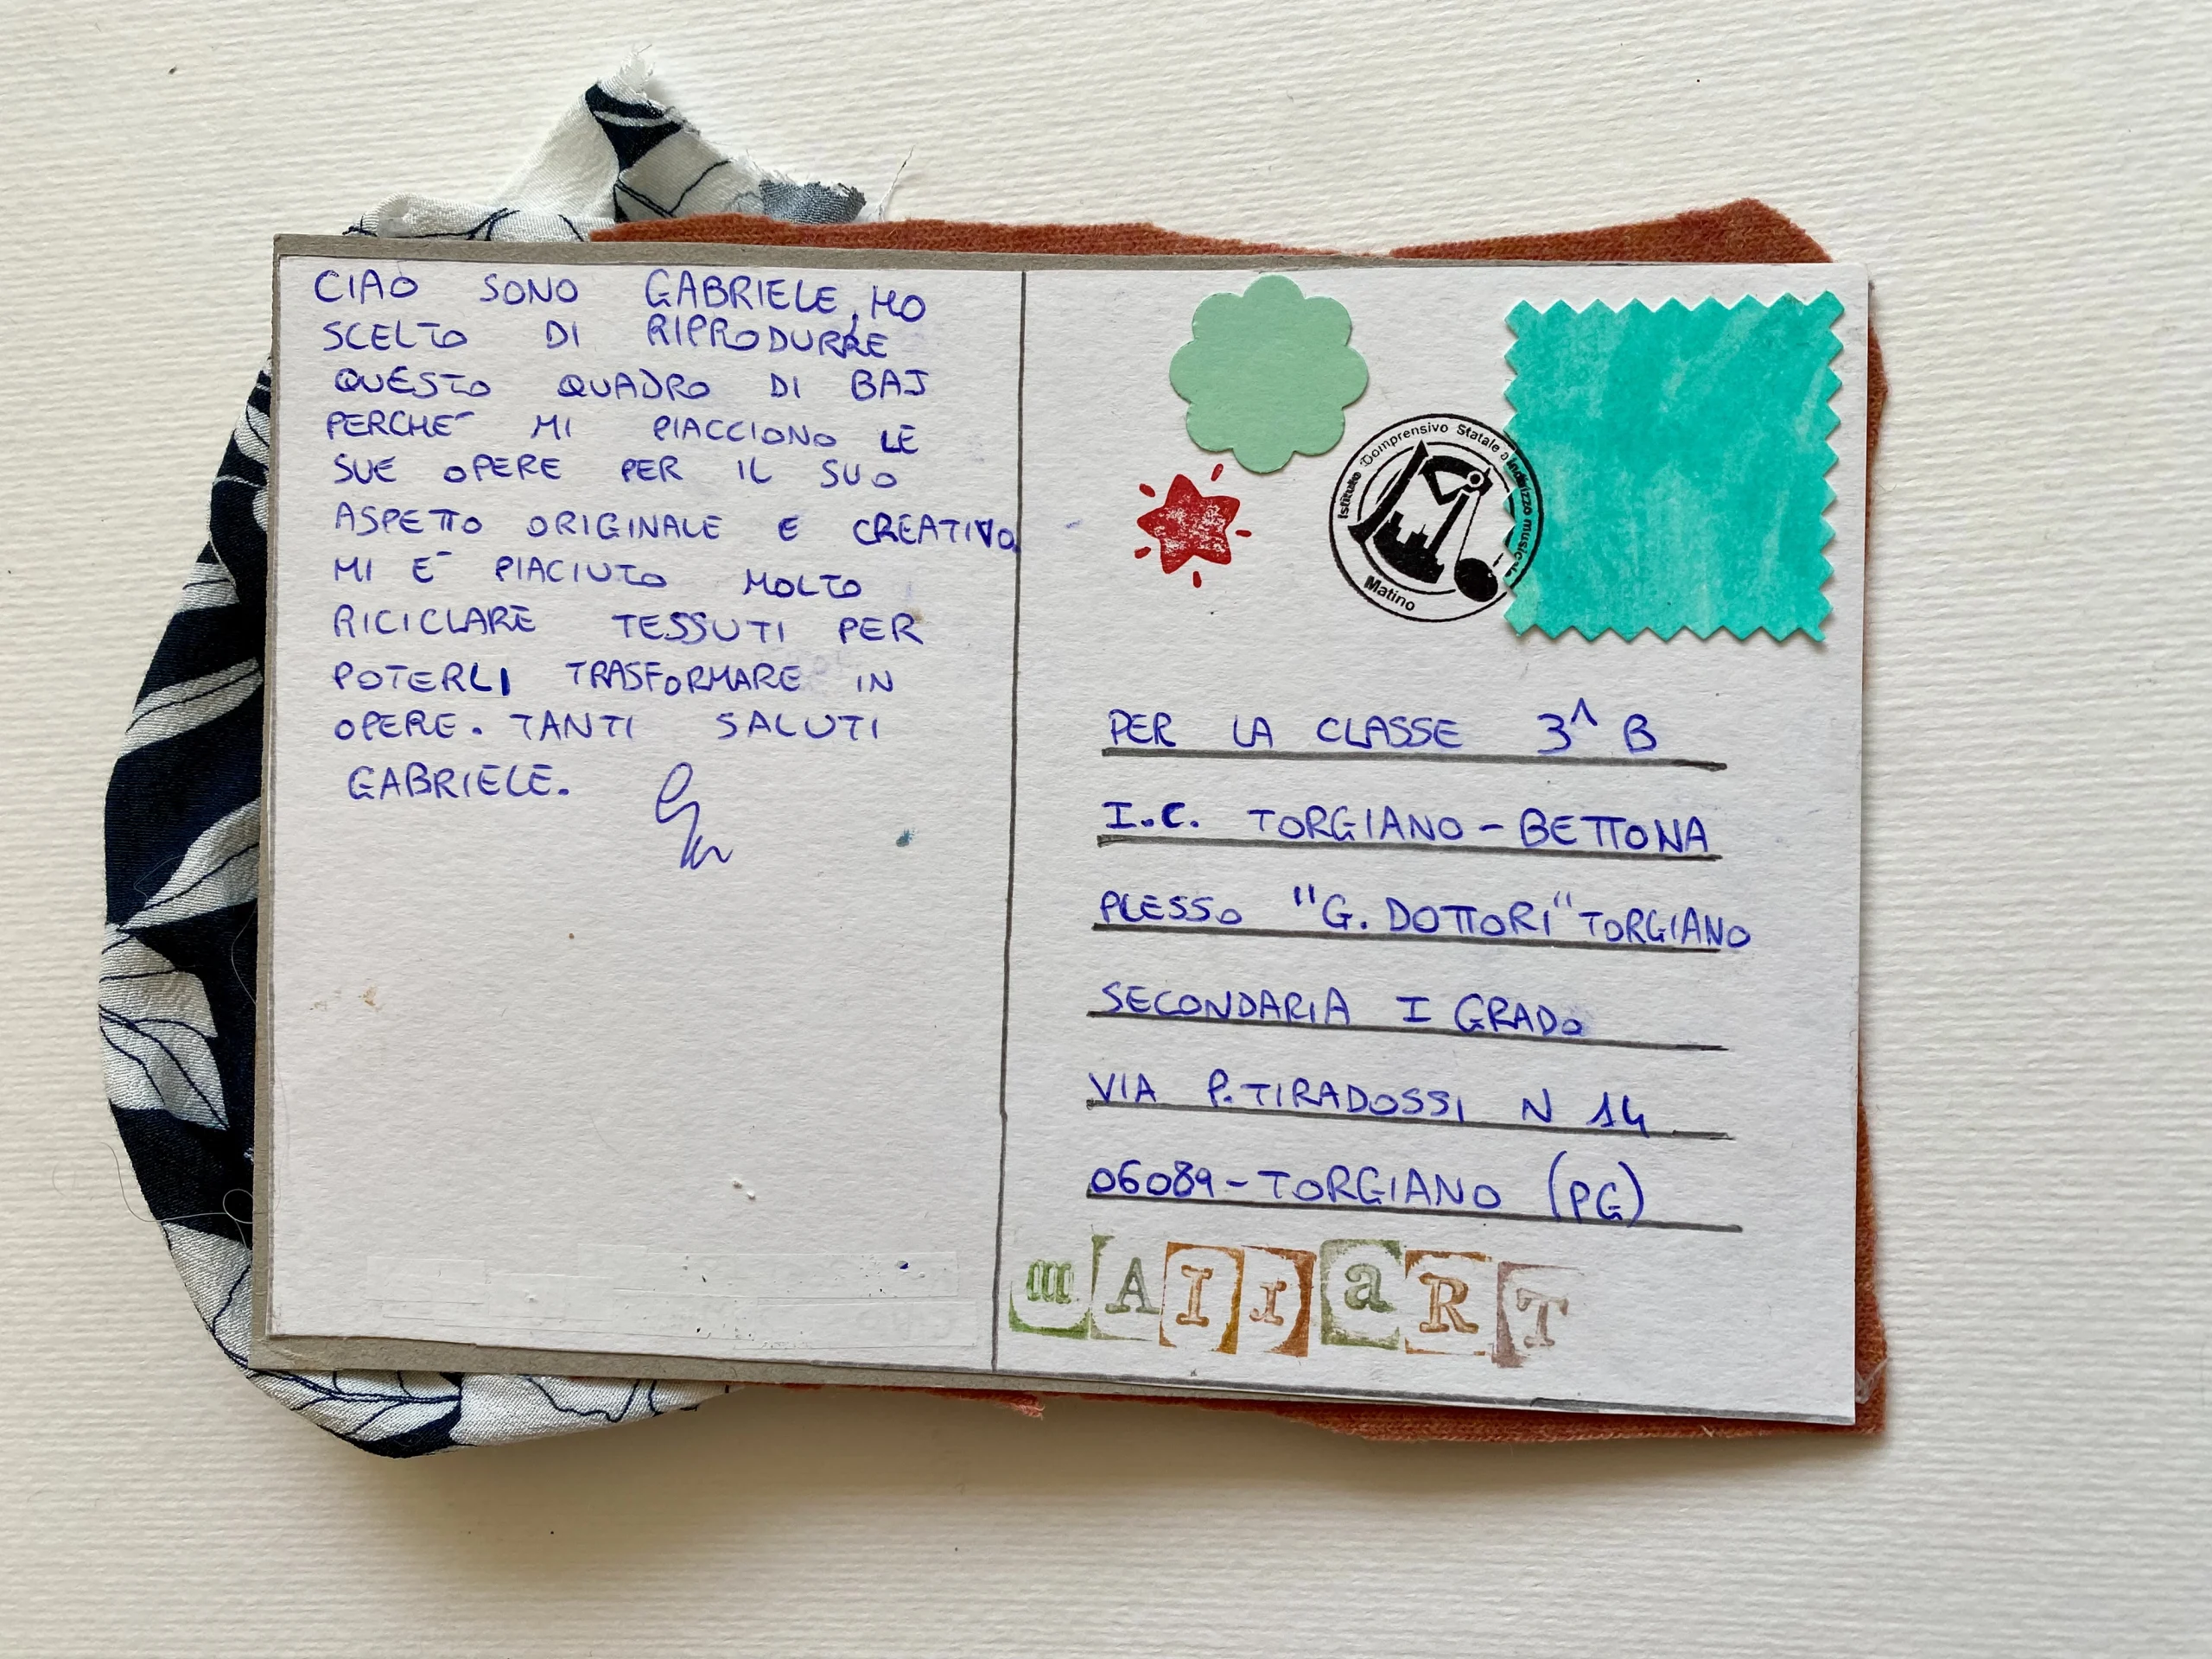 CIAO SONO GABRIELE, HO
SCELTO DI RIPRODURRE
QUESTO QUADRO DI BAJ
PERCHE´ MI PIACCIONO LE
SUE OPERE PER IL SUO
ASPETTO ORIGINALE E CREATIVO
MI E´ PIACIUTO MOLTO
RICICLARE TESSUTI PER
POTERLI TRASFORMARE IN
OPERE. TANTI SALUTI
GABRIELE.
Istituto Comprensivo Statale a Indirizzo musicale
Matino
PER LA CLASSE 3^ B
I.C. TORGIANO-BETTONA
PLESSO "G. DOTTORI" TORGIANO
SECONDARIA I GRADO
VIA P. TIRADOSSI N 14
06089-TORGIANO (PG)
mAIIaRT